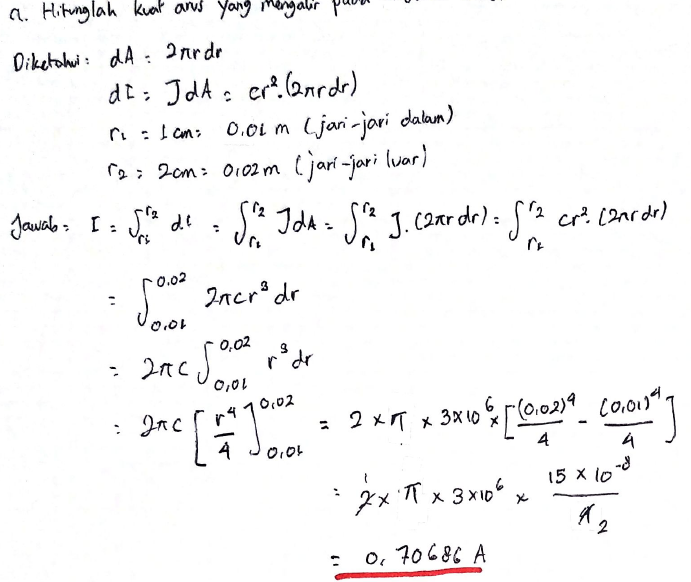 a. Hitunglah kuat arus yang mengalir pada
Diketahui : dA = 2πr dr
dI = J dA = cr². (2πr dr)
r₁ = 1 cm = 0.01 m (jari-jari dalam)
r₂ = 2cm = 0,02 m (jari-jari luar)
Jawab = I = ∫_{r₁}^{r₂} dI = ∫_{r₁}^{r₂} J dA = ∫_{r₁}^{r₂} J. (2πr dr) = ∫_{r₁}^{r₂} cr². (2πr dr)
= ∫_{0,01}^{0.02} 2πcr³ dr
= 2πc ∫_{0,01}^{0,02} r³ dr
= 2πc [r⁴/4]_{0,01}^{0,02} = 2 × π × 3×10⁶ × [(0,02)⁴/4 - (0,01)⁴/4]
= 2 × π × 3×10⁶ × 15 × 10⁻⁸/4 1 2
= 0,70686 A